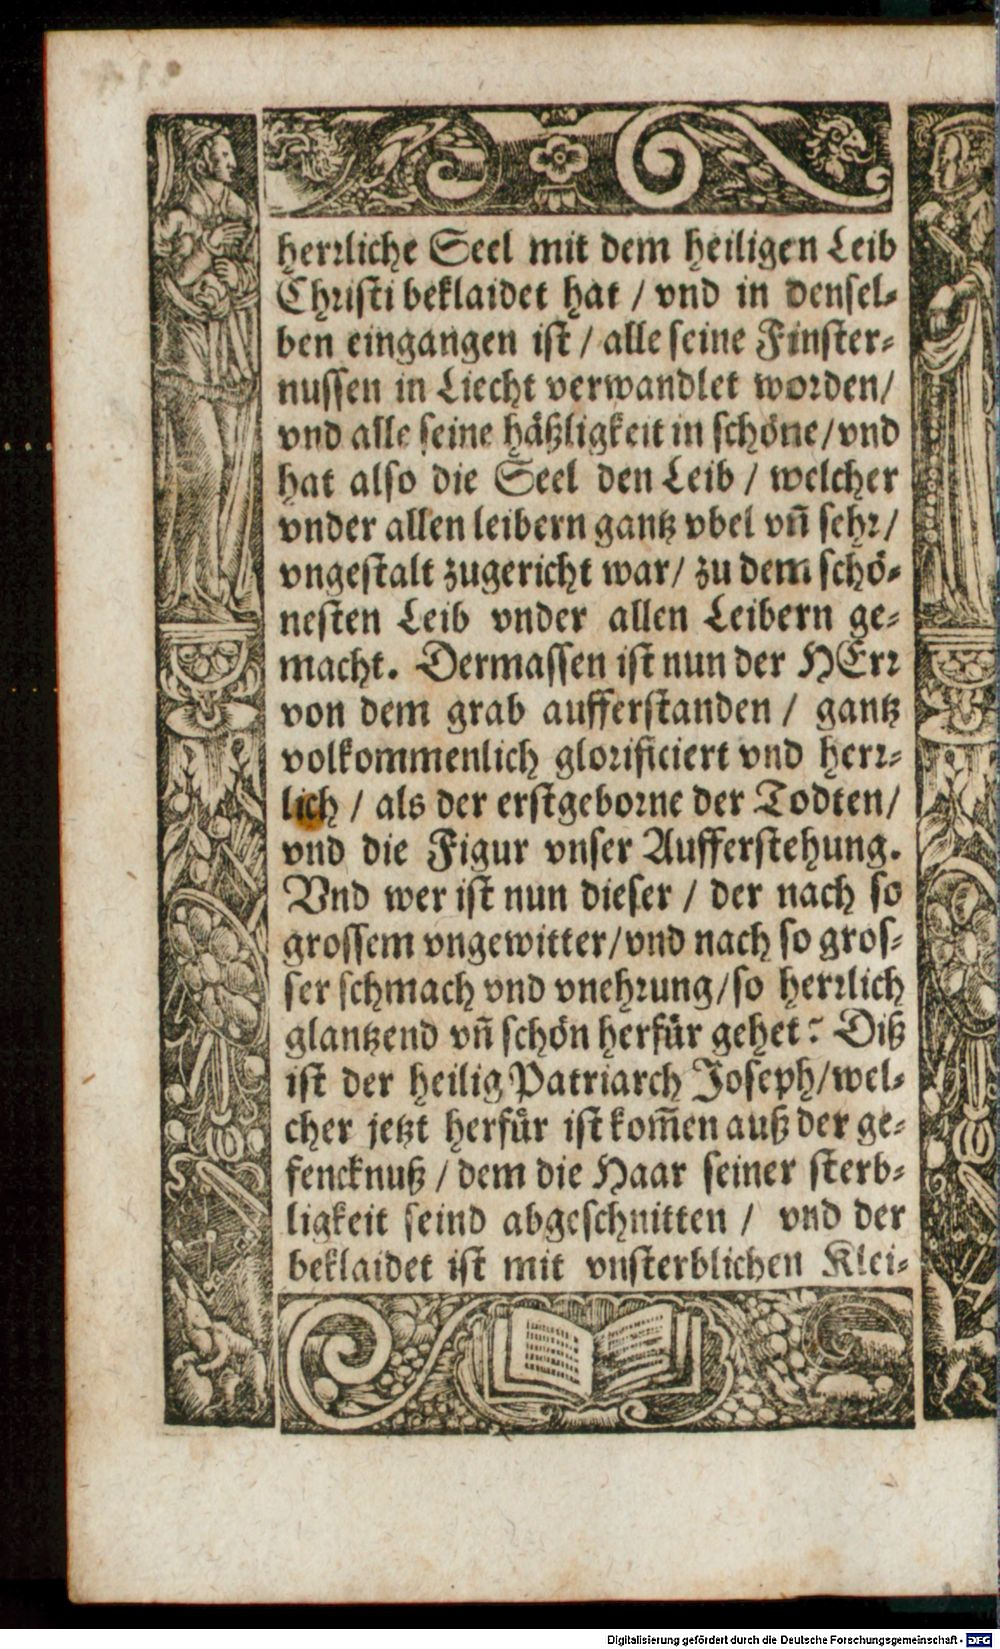 herꝛliche Seel mit dem heiligen Leib
Chꝛisti beklaidet hat / vnd in densel⸗
ben eingangen ist / alle seine Finster⸗
nussen in Liecht verwandlet woꝛden/
vnd alle seine häßligkeit in schöne/vnd
hat also die Seel den Leib / welcher
vnder allen leibern gantz vbel vñ sehꝛ/
vngestalt zugericht war/ zu dem schö⸗
nesten Leib vnder allen Leibern ge⸗
macht. Dermassen ist nun der HErꝛ
von dem grab aufferstanden / gantz
volkommenlich gloꝛificiert vnd herꝛ⸗
lich / als der erstgeboꝛne der Todten/
vnd die Figur vnser Aufferstehung.
Vnd wer ist nun dieser / der nach so
grossem vngewitter/vnd nach so gros⸗
ser schmach vnd vnehꝛung/so herꝛlich
glantzend vñ schön herfür gehet? Diß
ist der heilig Patriarch Joseph/wel⸗
cher jetzt herfür ist kom̃en auß der ge⸗
fencknuß / dem die Haar seiner sterb⸗
ligkeit seind abgeschnitten / vnd der
beklaidet ist mit vnsterblichen Klei⸗
Digitalisierung gefördert durch die Deutsche Forschungsgemeinschaft - DFG